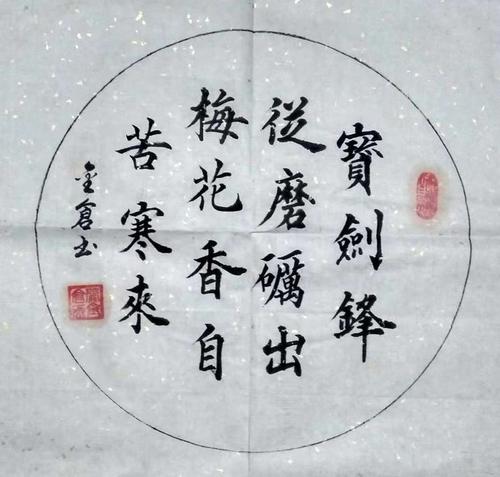 寶劍鋒
從磨礪出
梅花香自
苦寒來
金倉书